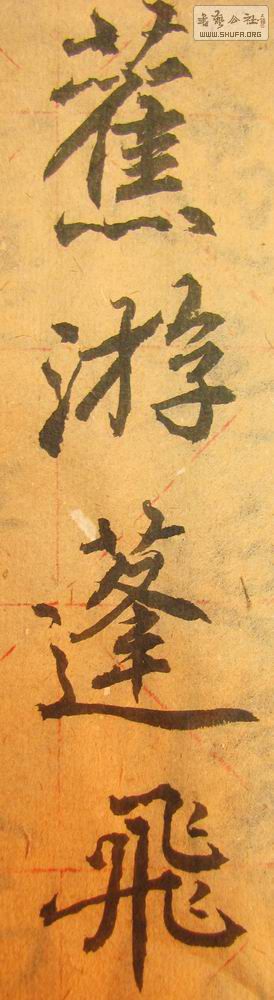 書藝公社
WWW.SHUFA.ORG
蕉
游
蓬
飛